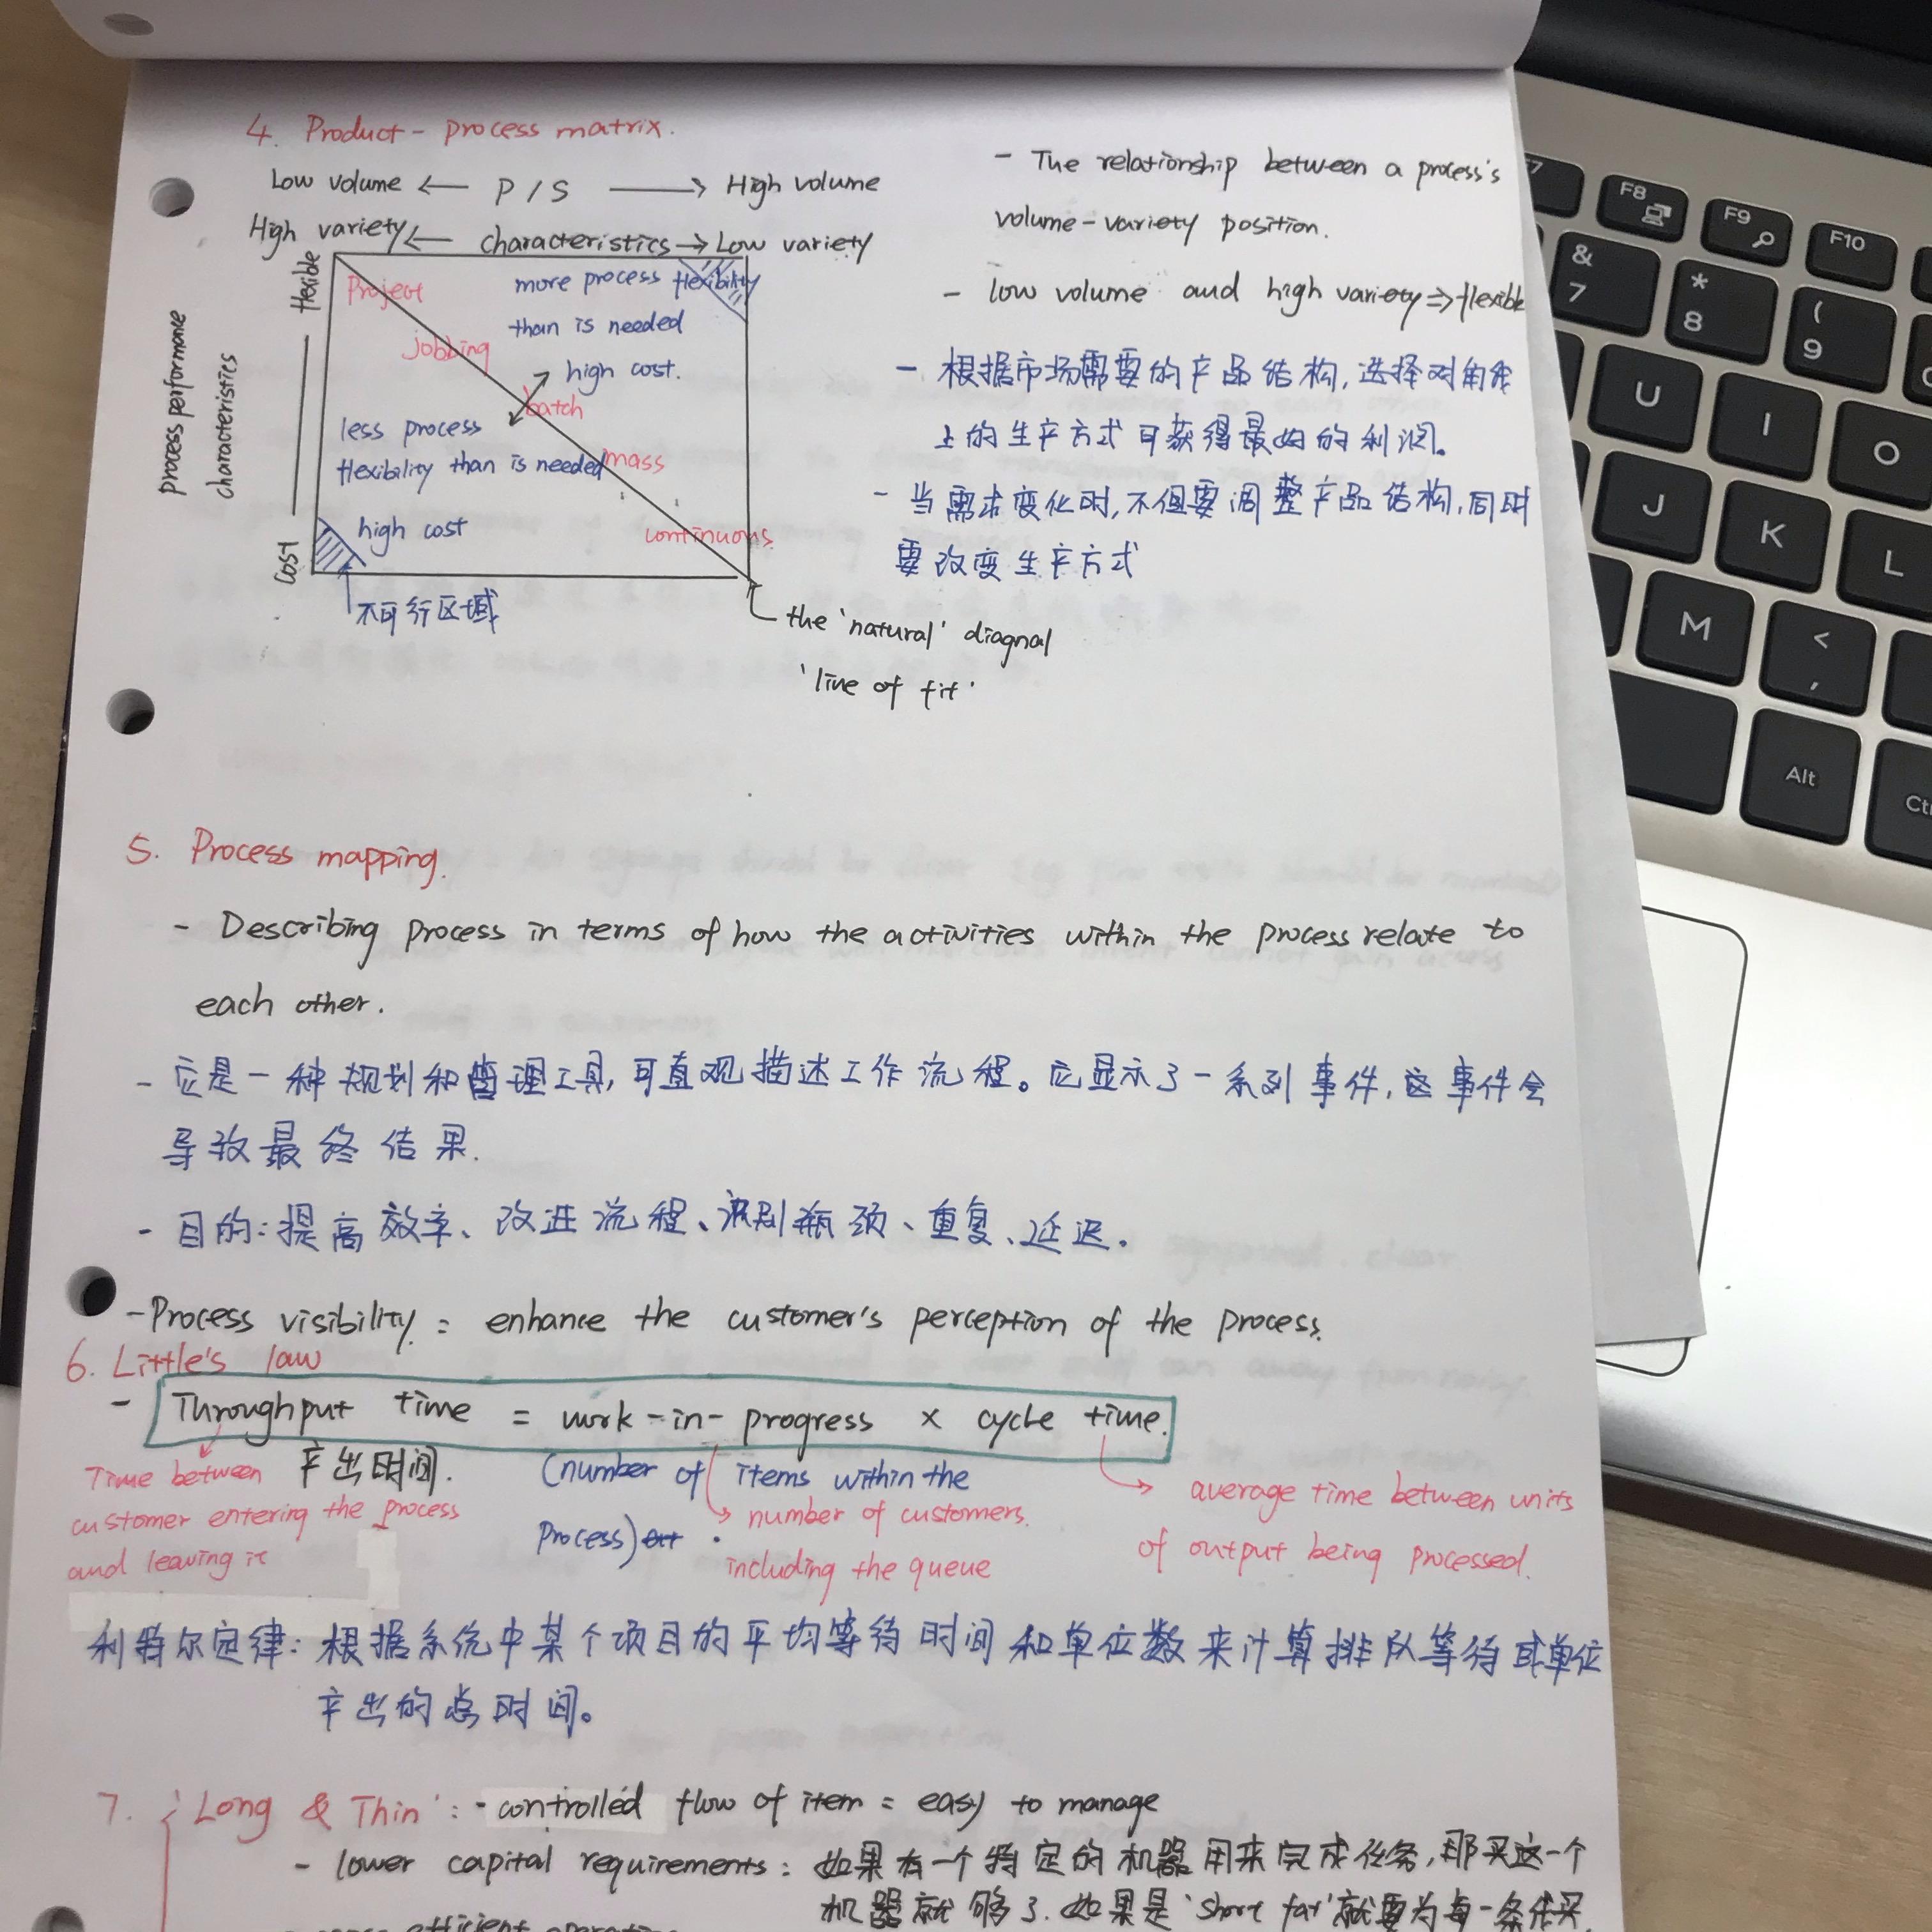 4. Product - process matrix.
Low volume ← P / S → High volume
High variety ← characteristics → Low variety
process performance
characteristics
flexible
cost
Project
jobbing
batch
mass
continuous
more process flexibility
than is needed
high cost.
less process
flexibility than is needed
high cost
不可行区域
the 'natural' diagnal
'line of fit'
- The relationship between a process's
volume-variety position.
- low volume and high variety ⇒ flexible
- 根据市场需要的产品结构,选择对角线
上的生产方式可获得最好的利润。
- 当需求变化时,不但要调整产品结构,同时
要改变生产方式
5. Process mapping.
- Describing process in terms of how the activities within the process relate to
each other.
- 它是一种规划和管理工具,可直观描述工作流程。它显示了一系列事件,这事件会
导致最终结果.
- 目的:提高效率、改进流程、识别瓶颈、重复、延迟。
- Process visibility : enhance the customer's perception of the process.
6. Little's law
- Throughput time = work-in-progress × cycle time.
产出时间.
Time between
customer entering the process
and leaving it
(number of items within the
process)
number of customers.
including the queue
average time between units
of output being processed.
利特尔定律: 根据系统中某个项目的平均等待时间和单位数来计算排队等待或单位
产出的总时间。
7. 'Long & Thin': - controlled flow of item = easy to manage
- lower capital requirements: 如果有一个特定的机器用来完成任务,那买这一个
机器就够了.如果是'short fat'就要为每一条线买
efficient
F7
F8
F9
F10
&
7
*
8
(
9
U
I
O
J
K
L
M
<
,
Alt
Ct